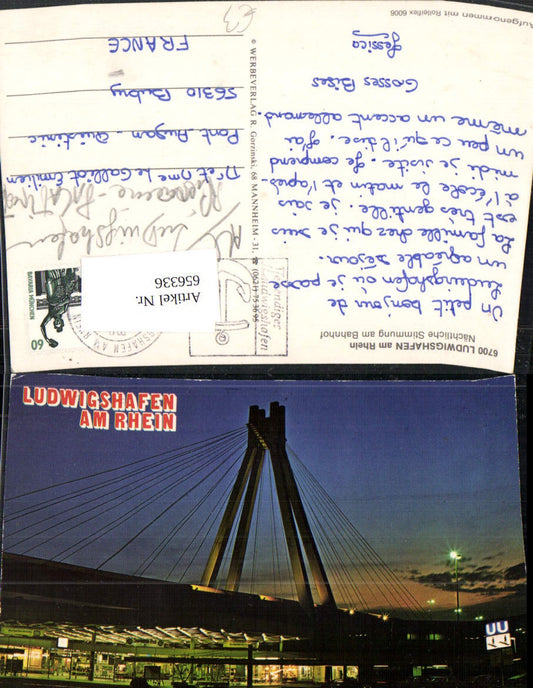 6700 LUDWIGSHAFEN AM Rhein
Nächtliche Stimmung am Bahnhof
Un petit bonjour de
Ludwigshafen où je passe
un agréable séjour.
La famille chez qui je suis
est très gentille. je vais
à l'école le matin et l'après-
midi je visite. Je comprend
un peu ce qu'il dise. J'ai
même un accent allemand.
Grosses Bises
Jessica
Aufgenommen mit Rolleiflex 6006
© WERBEVERLAG R. Gorzinski, 68 MANNHEIM-31,
60
BAVARIA MÜNCHEN
Artikel Nr.
656336
Ludwigshafen
Mr et Mme Le Galliot Emilien
Pont-Augan-Quistinic
56310 Bubry
FRANCE
€3
LUDWIGSHAFEN
AM RHEIN